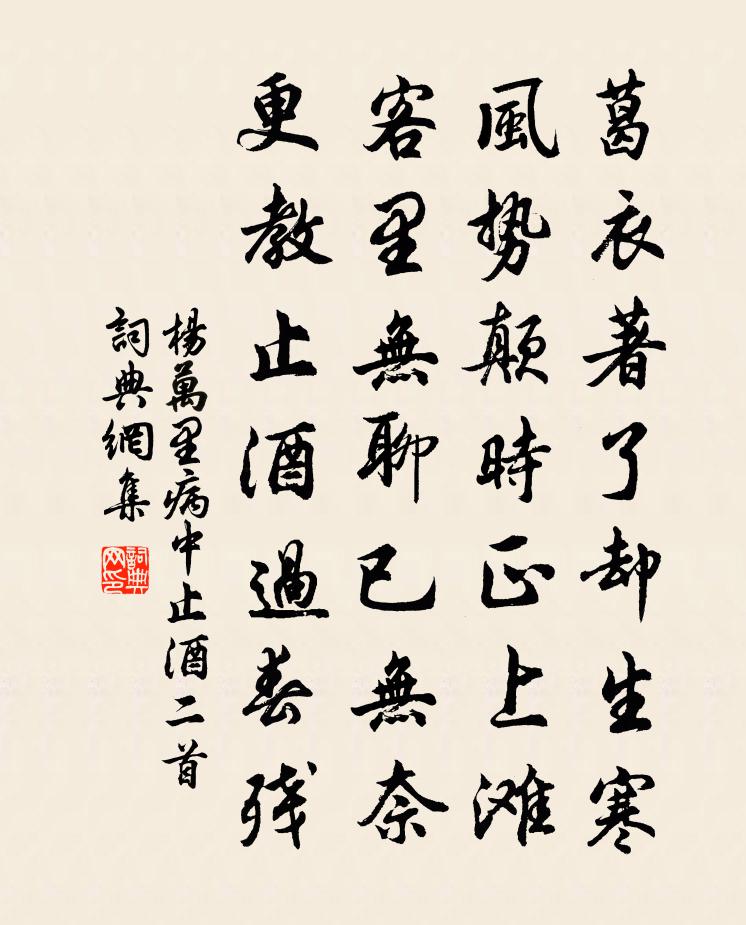 葛衣著了却生寒
風勢顛時正上滩
客里無聊已無奈
更教止酒過春残
楊萬里病中止酒二首
詞典網集
詞典
网印